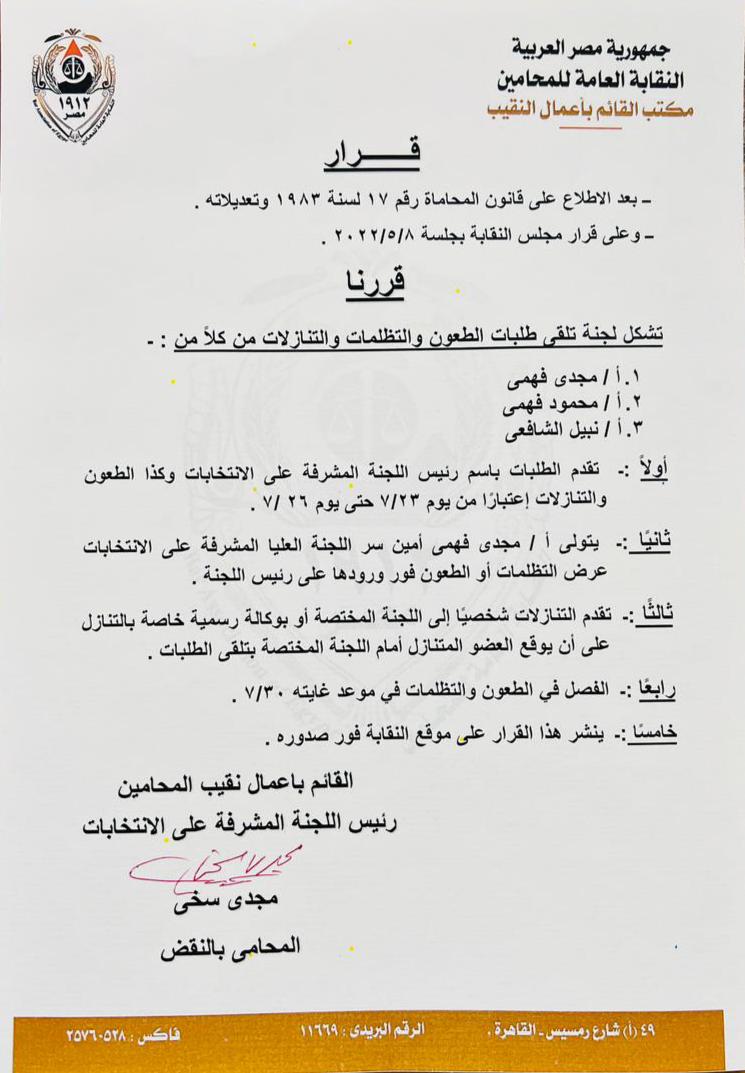 جمهورية مصر العربية
النقابة العامة للمحامين
مكتب القائم بأعمال النقيب
١٩١٢
مصر
قـــــرار
ـ بعد الاطلاع على قانون المحاماة رقم ١٧ لسنة ١٩٨٣ وتعديلاته .
ـ وعلى قرار مجلس النقابة بجلسة ٢٠٢٢/٥/٨ .
قررنا
تشكل لجنة تلقى طلبات الطعون والتظلمات والتنازلات من كلاً من : -
١. أ / مجدى فهمى
٢. أ / محمود فهمى
٣. أ / نبيل الشافعى
أولاً :- تقدم الطلبات باسم رئيس اللجنة المشرفة على الانتخابات وكذا الطعون
والتنازلات إعتبارًا من يوم ٧/٢٣ حتى يوم ٢٦ /٧ .
ثانيًا :- يتولى أ / مجدى فهمى أمين سر اللجنة العليا المشرفة على الانتخابات
عرض التظلمات أو الطعون فور ورودها على رئيس اللجنة .
ثالثًا :- تقدم التنازلات شخصيًا إلى اللجنة المختصة أو بوكالة رسمية خاصة بالتنازل
على أن يوقع العضو المتنازل أمام اللجنة المختصة بتلقى الطلبات .
رابعًا :- الفصل في الطعون والتظلمات في موعد غايته ٧/٣٠ .
خامسًا :- ينشر هذا القرار على موقع النقابة فور صدوره .
القائم باعمال نقيب المحامين
رئيس اللجنة المشرفة على الانتخابات
مجدى سخى
المحامى بالنقض
٤٩ (أ) شارع رمسيس ـ القاهرة . الرقم البريدى : ١١٦٦٩ فاكس : ٢٥٧٦٠٥٢٨